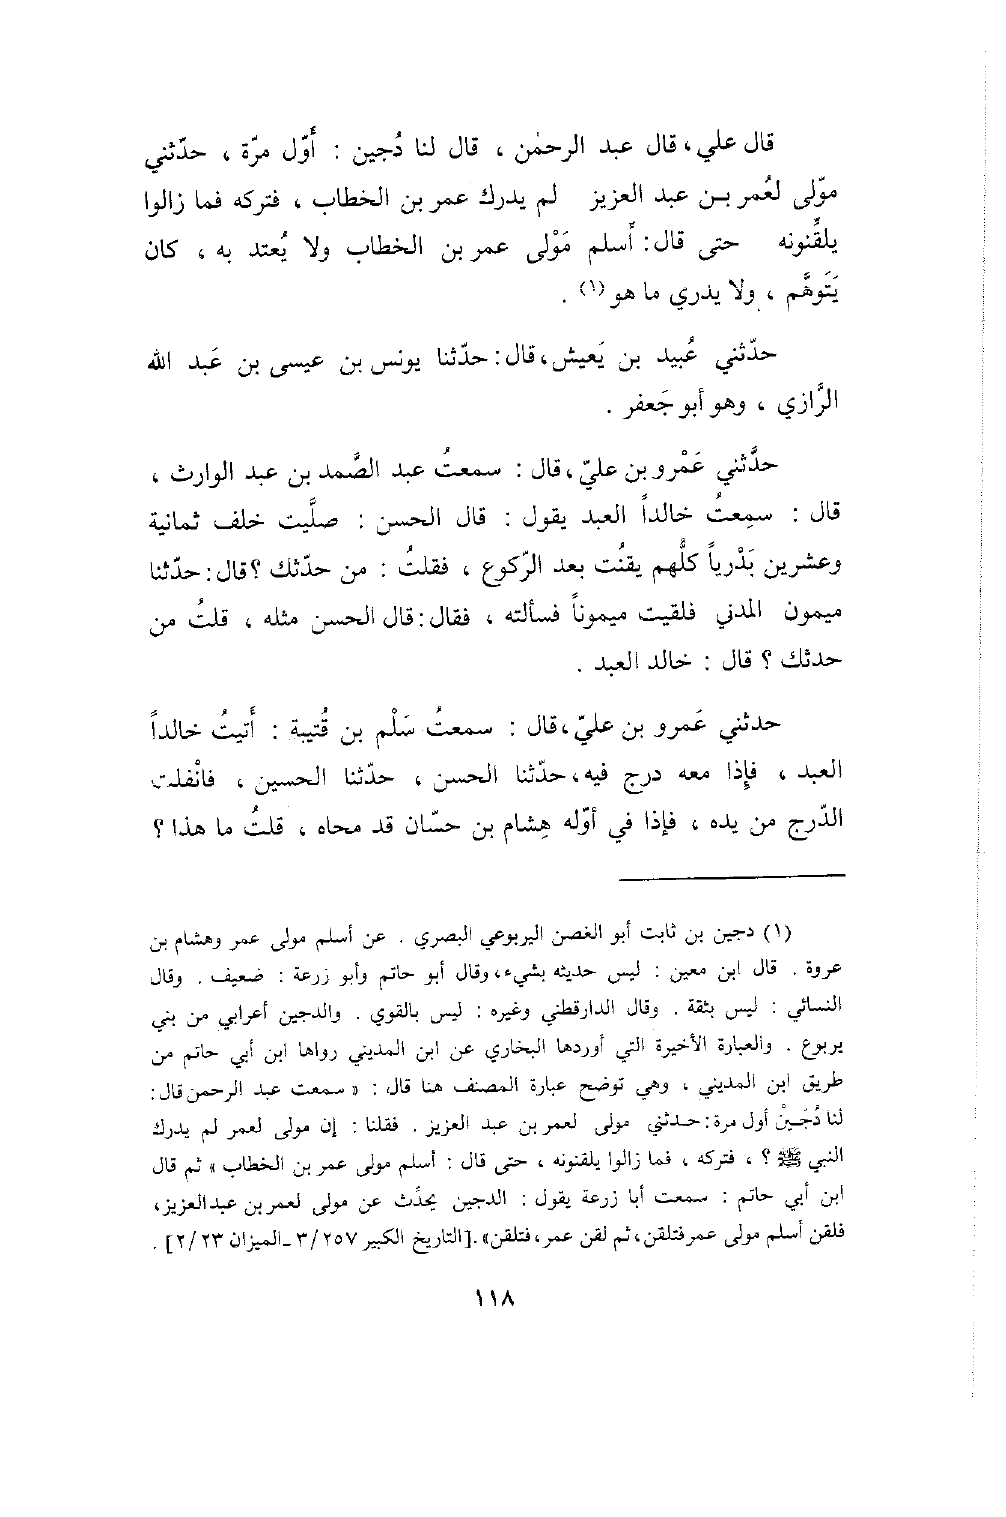 قال علي، قال عبد الرحمٰن ، قال لنا دُجين : أَوّل مرّة ، حدّثني
موّلى لعُمر بـن عبد العزيز لم يدرك عمر بن الخطاب ، فتركه فما زالوا
يلقّنونه حتى قال: أَسلم مَوْلى عمر بن الخطاب ولا يُعتد به ، كان
يَتَوهَّم ، ولا يدري ما هو (١) .
حدّثني عُبيد بن يَعيش، قال: حدّثنا يونس بن عيسى بن عَبد الله
الرَّازي ، وهو أبو جَعفر .
حدَّثني عَمْرو بن عليّ، قال : سمعتُ عبد الصَّمد بن عبد الوارث ،
قال : سمِعتُ خالداً العبد يقول : قال الحسن : صلَّيت خلف ثمانية
وعشرين بَدْرياً كلُّهم يقنُت بعد الرّكوع ، فقلتُ : من حدّثك ؟ قال: حدّثنا
ميمون المدني فلقيت ميموناً فسألته ، فقال: قال الحسن مثله ، قلتُ من
حدثك ؟ قال : خالد العبد .
حدثني عَمرو بن عليّ، قال : سمعتُ سَلْم بن قُتيبة : أَتيتُ خالداً
العبد ، فإِذا معه درج فيه، حدّثنا الحسن ، حدّثنا الحسين ، فانْفلت
الدّرج من يده ، فإذا في أوّله هِشام بن حسّان قد محاه ، قلتُ ما هذا ؟
(١) دجين بن ثابت أبو الغصن اليربوعي البصري . عن أسلم مولى عمر وهشام بن
عروة . قال ابن معين : ليس حديثه بشيء، وقال أبو حاتم وأبو زرعة : ضعيف . وقال
النسائي : ليس بثقة . وقال الدارقطني وغيره : ليس بالقوي . والدجين أعرابي من بني
يربوع . والعبارة الأخيرة التي أوردها البخاري عن ابن المديني رواها ابن أبي حاتم من
طريق ابن المديني ، وهي توضح عبارة المصنف هنا قال : « سمعت عبد الرحمن قال :
لنا دُجَـينْ أول مرة: حـدثني مولى لعمر بن عبد العزيز . فقلنا : إن مولى لعمر لم يدرك
النبي ﷺ ؟ ، فتركه ، فما زالوا يلقنونه ، حتى قال : أسلم مولى عمر بن الخطاب » ثم قال
ابن أبي حاتم : سمعت أبا زرعة يقول : الدجين يحدَّث عن مولى لعمر بن عبدالعزيز،
فلقن أسلم مولى عمر فتلقن، ثم لقن عمر، فتلقن» .[التاريخ الكبير ٣/٢٥٧ -الميزان ٢/٢٣] .
١١٨